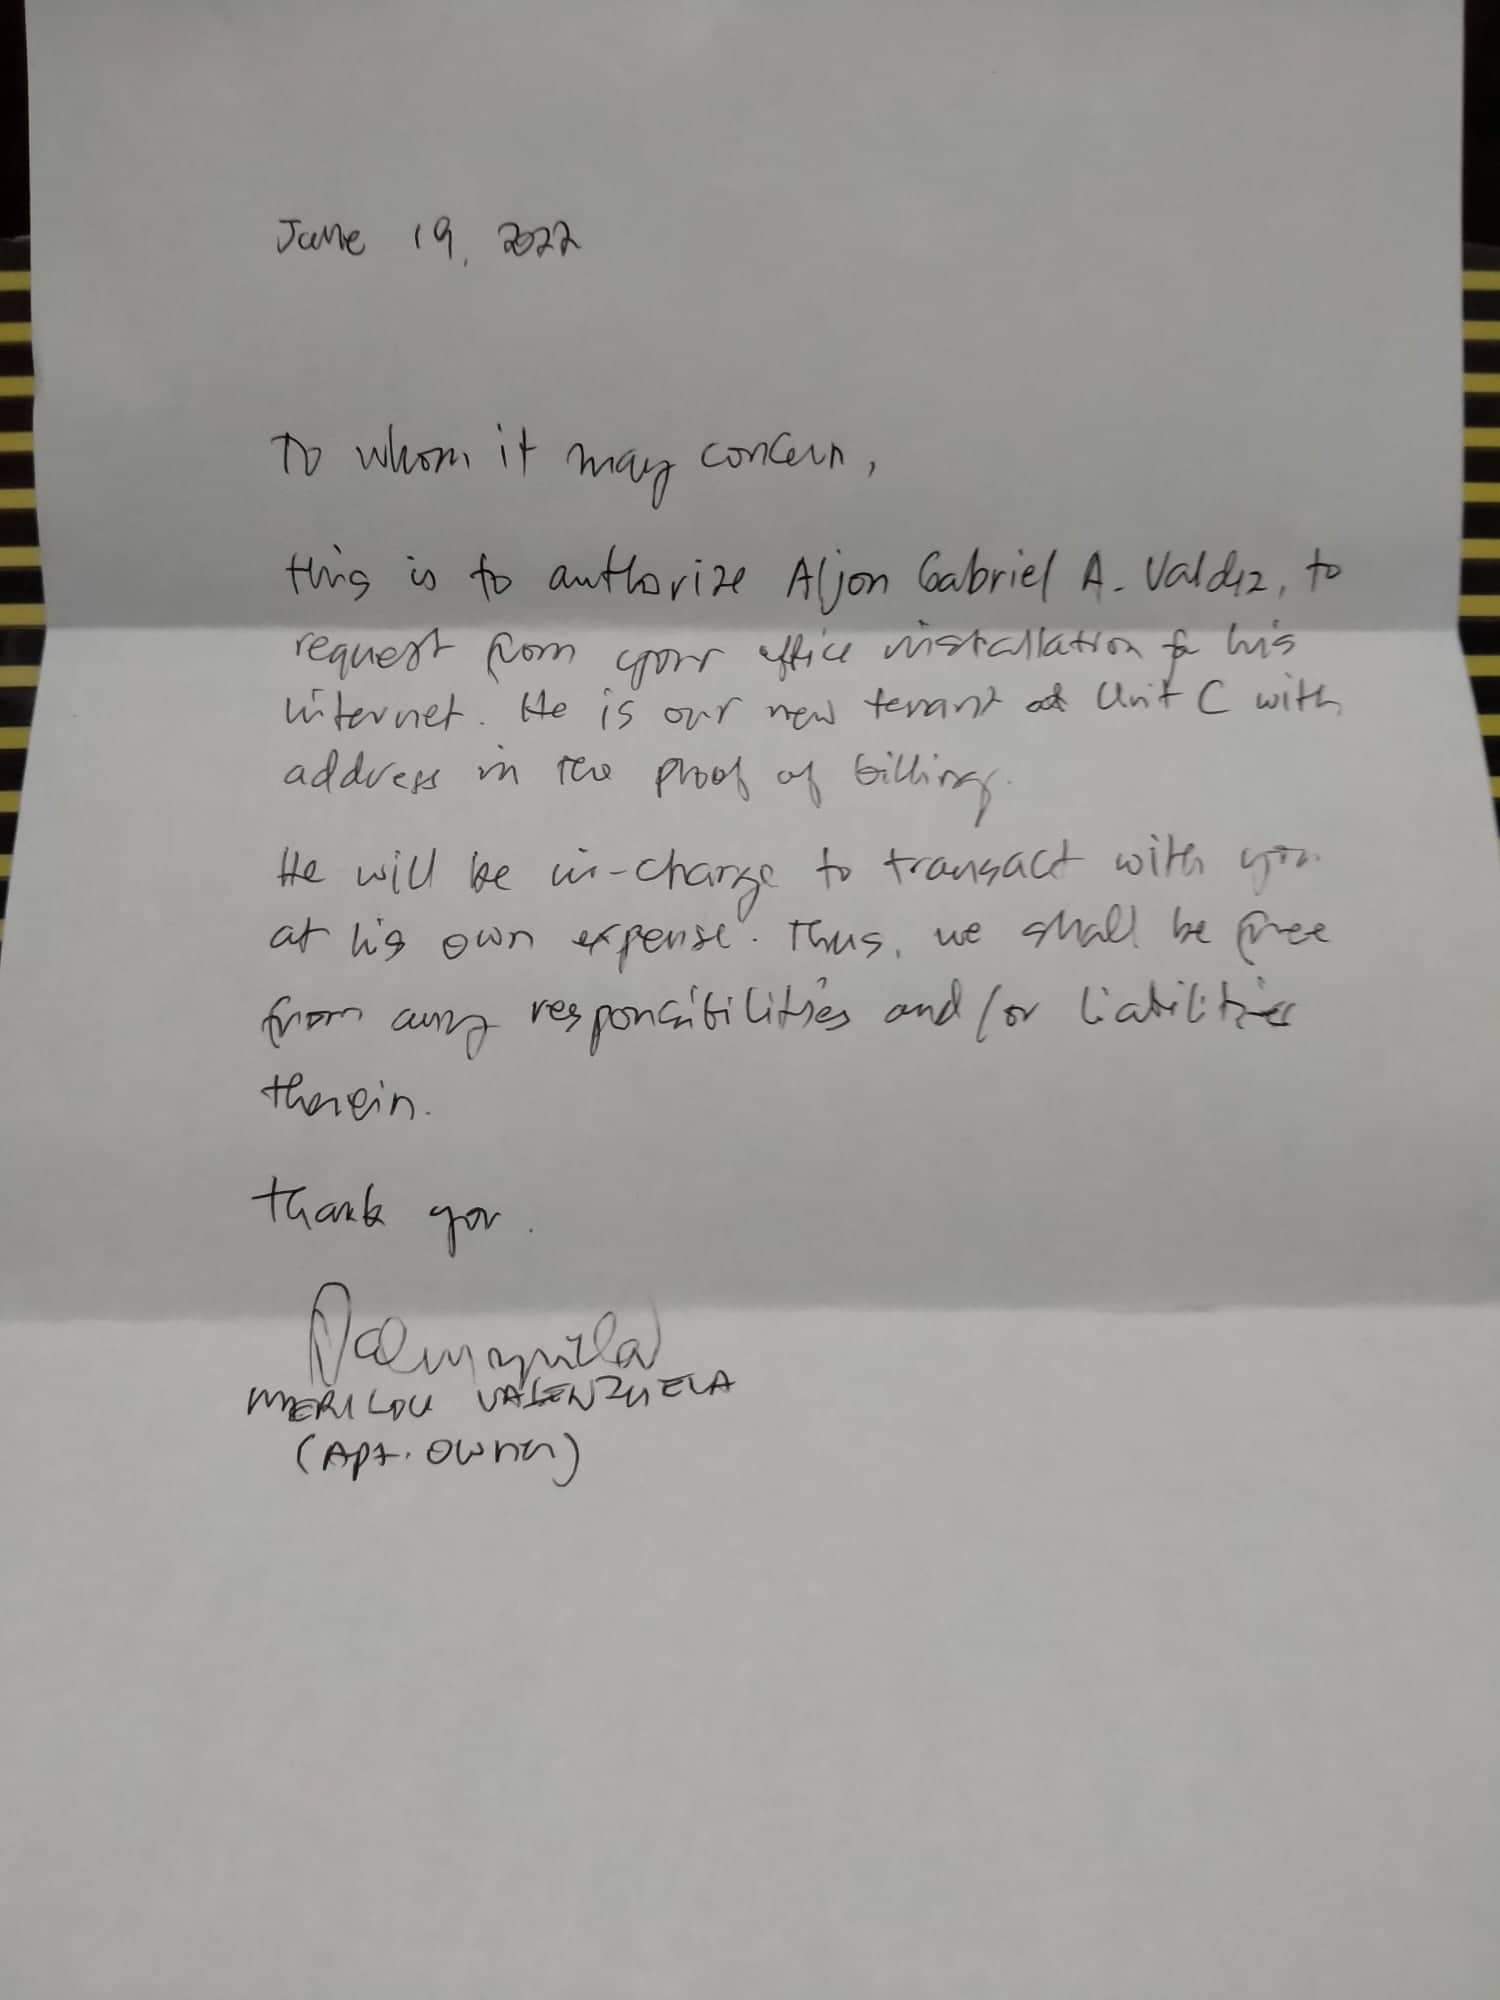 June 19, 2022
To whom it may concern,
this is to authorize Aljon Gabriel A. Valdez, to
request from your office installation for his
internet. He is our new tenant at Unit C with
address in the proof of billing.
He will be in-charge to transact with you
at his own expense. Thus, we shall be free
from any responsibilities and/or liabilities
therein.
Thank you.
MERILOU VALENZUELA
(Apt. Owner)